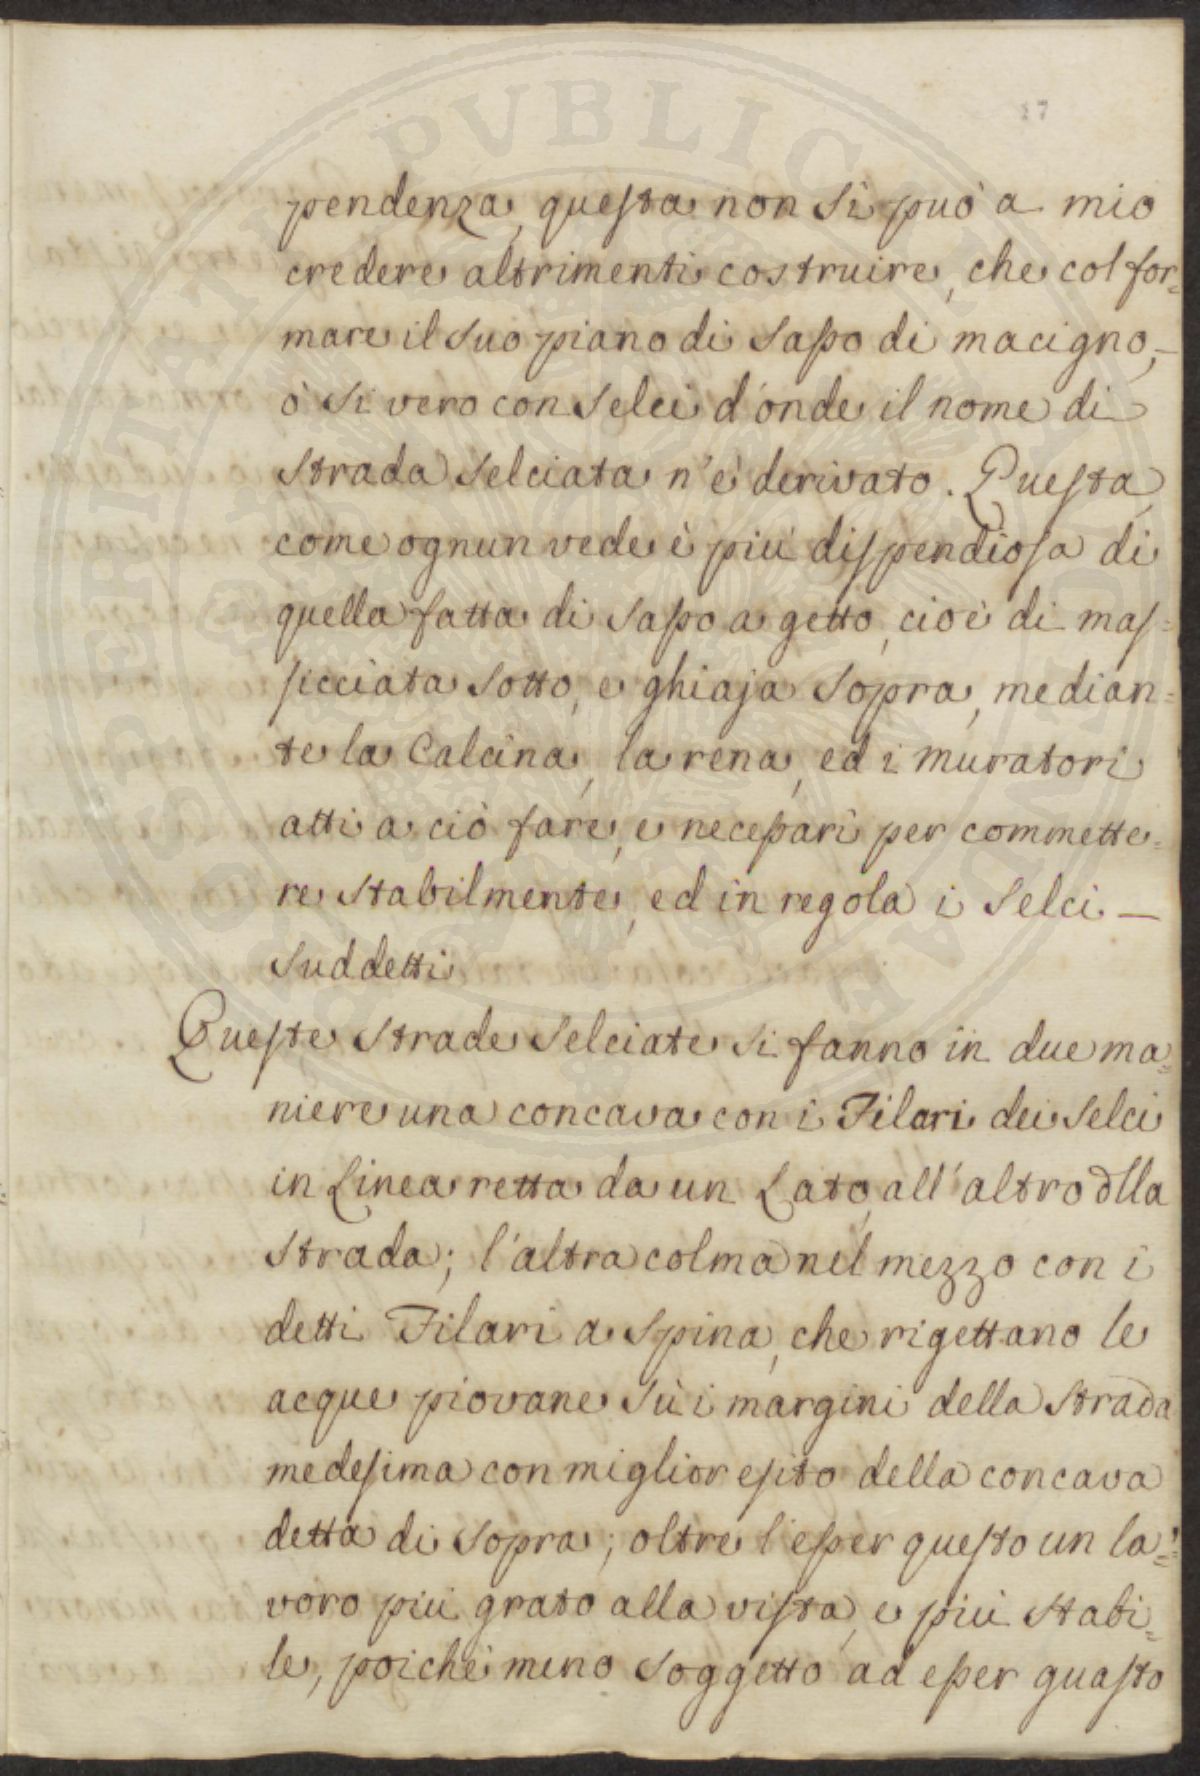 17
pendenza, questa non si può a mio
credere altrimenti costruire, che col for=
mare il suo piano di Sasso di macigno,
ò si vero con Selci d'onde il nome di
Strada Selciata n'è derivato. Questa,
come ognun vede è più dispendiosa di
quella fatta di Sasso a getto, cioè di mas=
sicciata sotto, e ghiaja sopra, median=
te la Calcina, la rena, ed i muratori
atti a ciò fare, e necessari per commette=
re stabilmente, ed in regola i Selci —
suddetti
Queste Strade Selciate si fanno in due ma=
niere una concava con i Filari dei Selci
in Linea retta da un Lato, all'altro dlla
Strada; l'altra colma nel mezzo con i
detti Filari a Spina, che rigettano le
acque piovane sù i margini della Strada
medesima con miglior esito della concava
detta di sopra; oltre l'esser questo un la=
voro più grato alla vista, e più stabi=
le, poichè meno soggetto ad esser guasto
PROSPERITATI PVBLICAE AVGENDAE